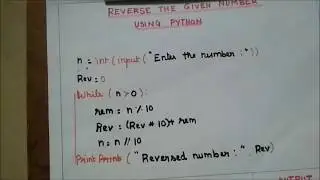 REVERSE THE GIVEN NUMBER
USING PYTHON
n = int(input("Enter the number :"))
Rev = 0
While (n > 0):
rem = n % 10
Rev = (Rev * 10) + rem
n = n // 10
Print ("Reversed number : " Rev)
OUTPUT